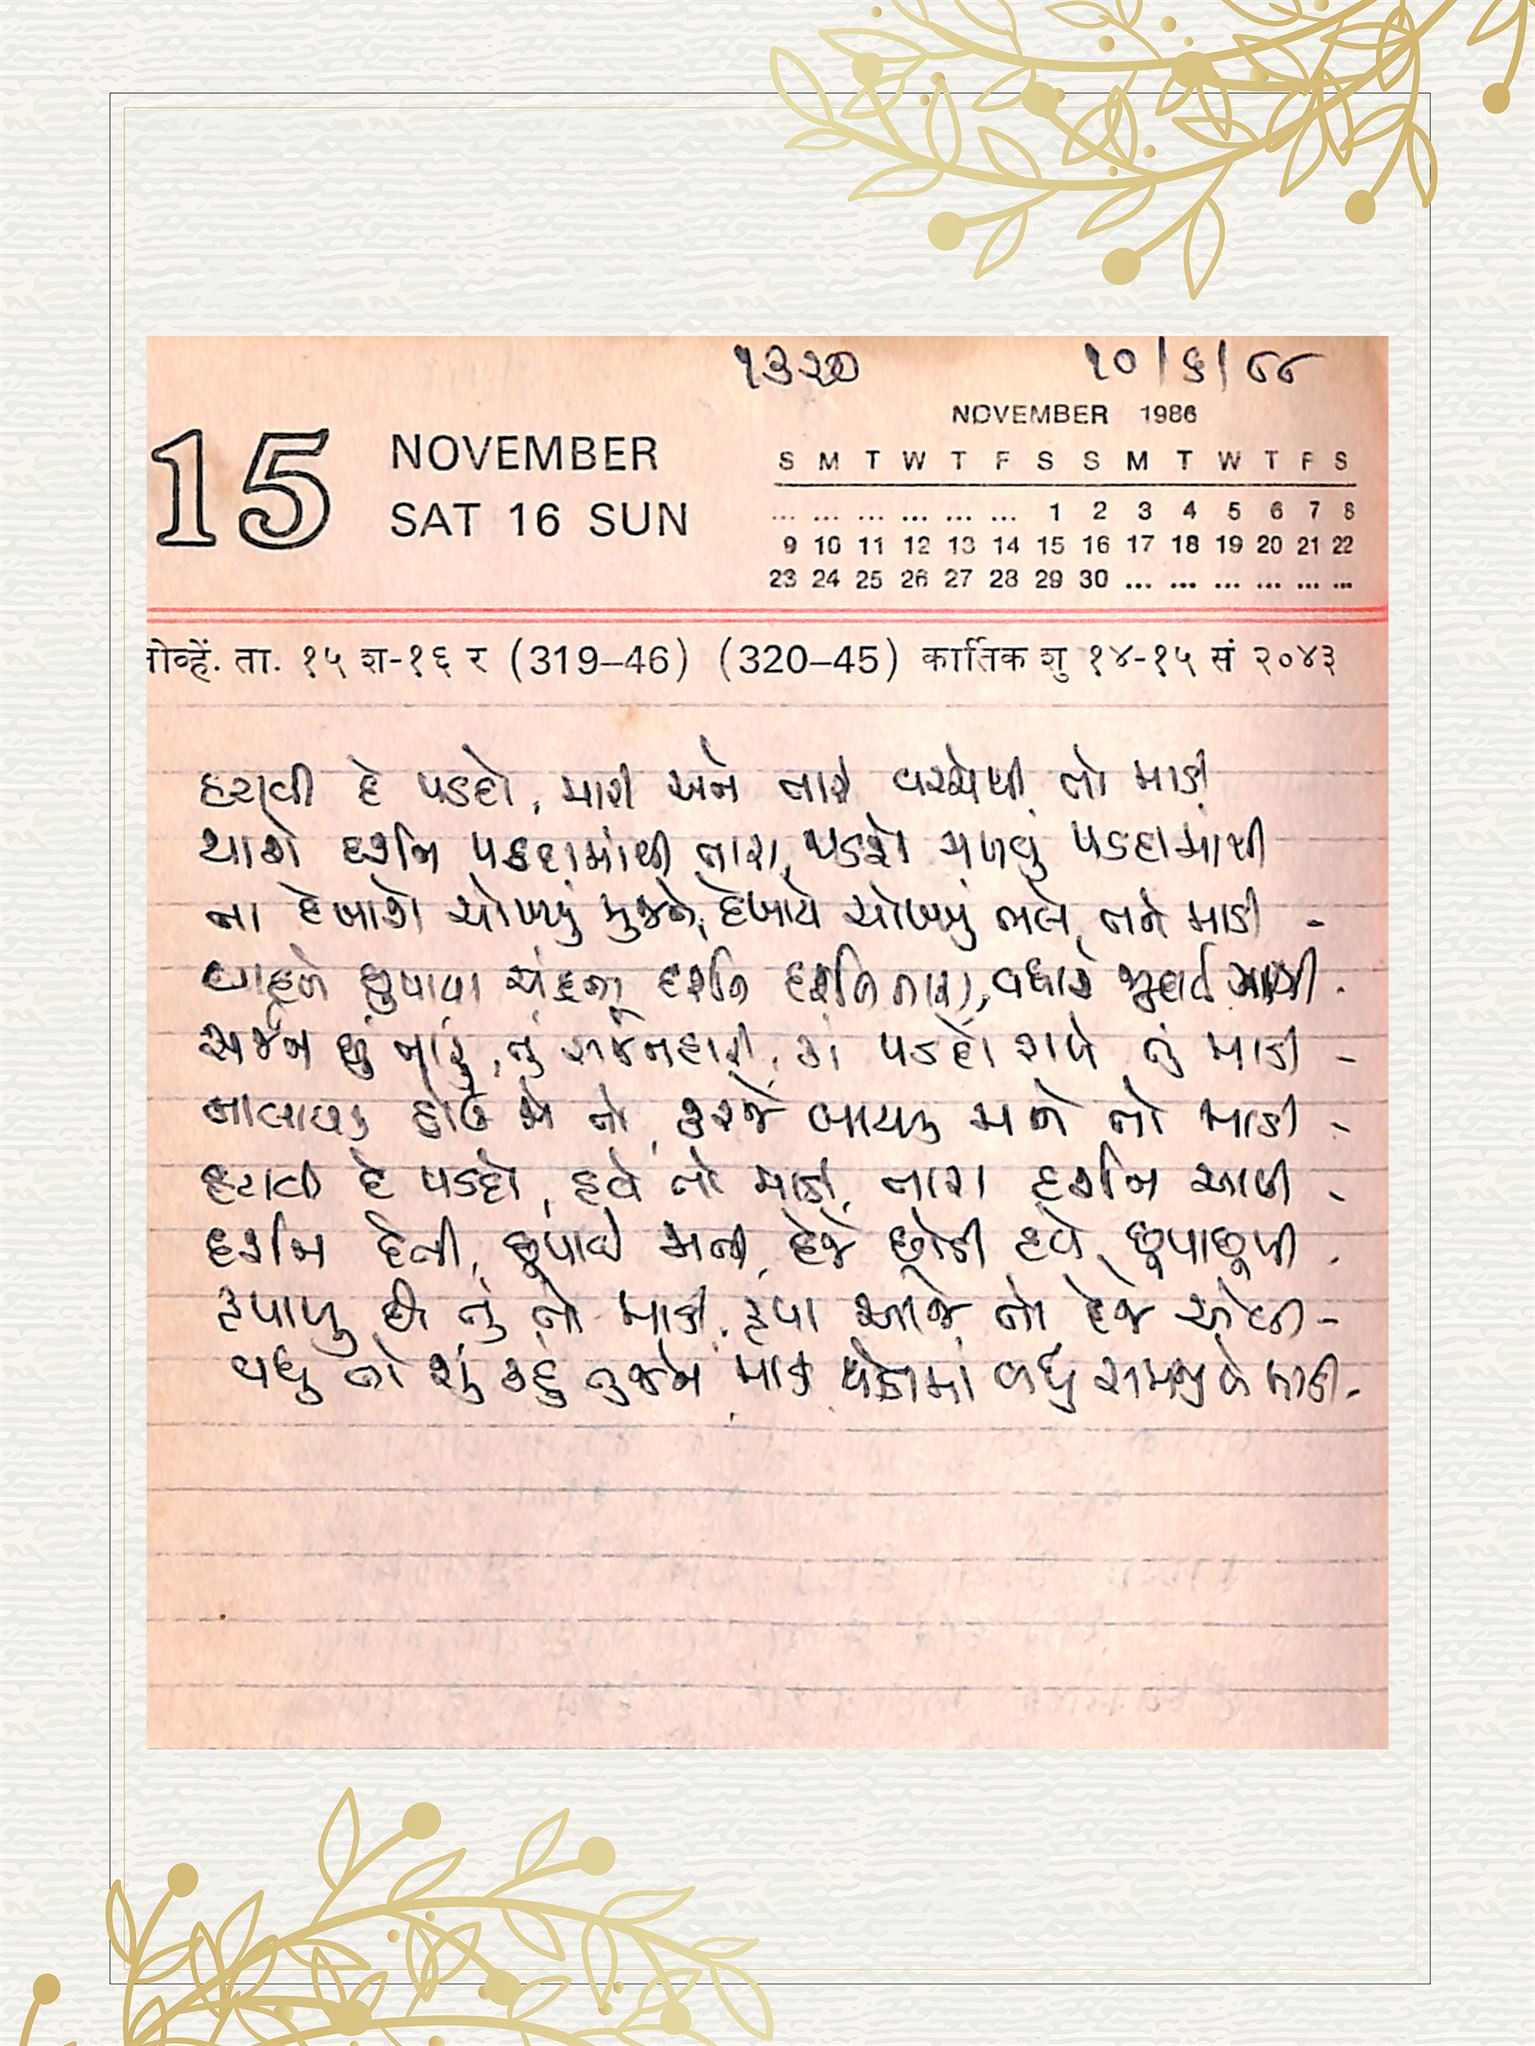 ૧૩૨૦ ૧૦/૬/૮૮
NOVEMBER 1986
15 NOVEMBER
SAT 16 SUN
S M T W T F S S M T W T F S
... ... ... ... ... ... 1 2 3 4 5 6 7 8
9 10 11 12 13 14 15 16 17 18 19 20 21 22
23 24 25 26 27 28 29 30 ... ... ... ... ... ...
नोव्हें. ता. १५ श-१६ र (319–46) (320–45) कार्तिक शु १४-१५ सं २०४३
હટાવી દે પડદો, મારી અને તારી વચ્ચેથી તો માડી
થાશે દર્શન પડદામાંથી તારા, પડશે ચળવું પડદામાંથી
ના દેખાશે ચોખ્ખું મુજને, દેખાયે ચોખ્ખું ભલે તને માડી -
છુપાયા દર્શન તારા, વધારે
સર્જન છું તારું, તું સર્જનહારી, કાં પડદો રાખે તું માડી -
નાલાયક હોઉં જો તો, કરજે લાયક મને તો માડી -
હટાવી દે પડદો, હવે તો માડી, તારા દર્શન આપી -
દર્શન દેતી, છુપાઈ જાતી, દેજે છોડી હવે, છુપાછુપી -
કૃપાળુ છે તું તો માડી, કૃપા આજે તો દેજે
વધુ તો શું કહું તુજને માડી, થોડામાં વધુ સમજી લે માડી -